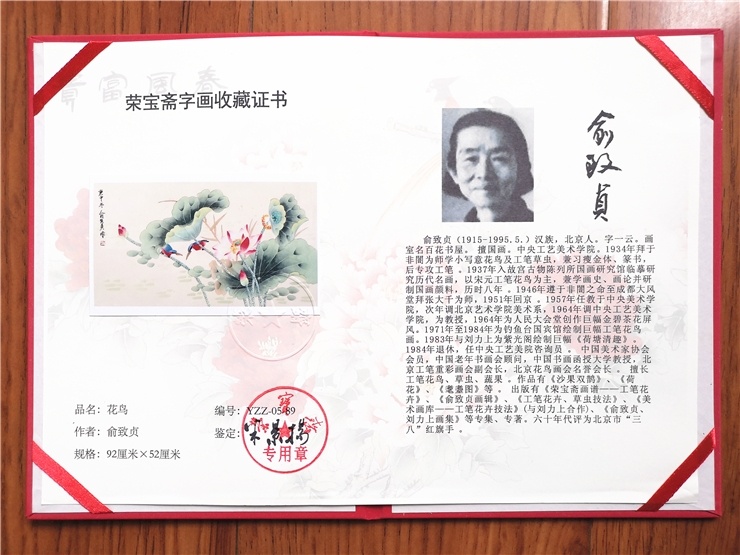 春国富貢
荣宝斋字画收藏证书
品名：花鸟
编号：YZZ-05-89
作者：俞致贞
鉴定：
规格：92厘米×52厘米
专用章
俞致贞
俞致贞（1915-1995.5.）汉族，北京人。字一云。画
室名百花书屋。 擅国画。中央工艺美术学院。1934年拜于
非闇为师学小写意花鸟及工笔草虫，兼习瘦金体、篆书，
后专攻工笔 。1937年入故宫古物陈列所国画研究馆临摹研
究历代名画，以宋元工笔花鸟为主，兼学画史、画论并研
制国画颜料，历时八年 。1946年遵于非闇之命至成都大风
堂拜张大千为师，1951年回京 。1957年任教于中央美术学
院，次年调北京艺术学院美术系，1964年调中央工艺美术
学院，为教授，1964年为人民大会堂创作巨幅金碧茶花屏
风。1971年至1984年为钓鱼台国宾馆绘制巨幅工笔花鸟
画。1983年与刘力上为紫光阁绘制巨幅《荷塘清趣》。
1984年退休，任中央工艺美院咨询员 。 中国美术家协会
会员，中国老年书画会顾问，中国书画函授大学教授，北
京工笔重彩画会副会长，北京花鸟画会名誉会长 。 擅长
工笔花鸟、草虫、蔬果 。作品有《沙果双鹊》、《荷
花》、《耄耋图》等 。 出版有《荣宝斋画谱——工笔花
卉》、《俞致贞画辑》、《工笔花卉、草虫技法》、《美
术画库——工笔花卉技法》（与刘力上合作）、《俞致贞、
刘力上画集》等专集、专著。六十年代评为北京市“三
八”红旗手 。